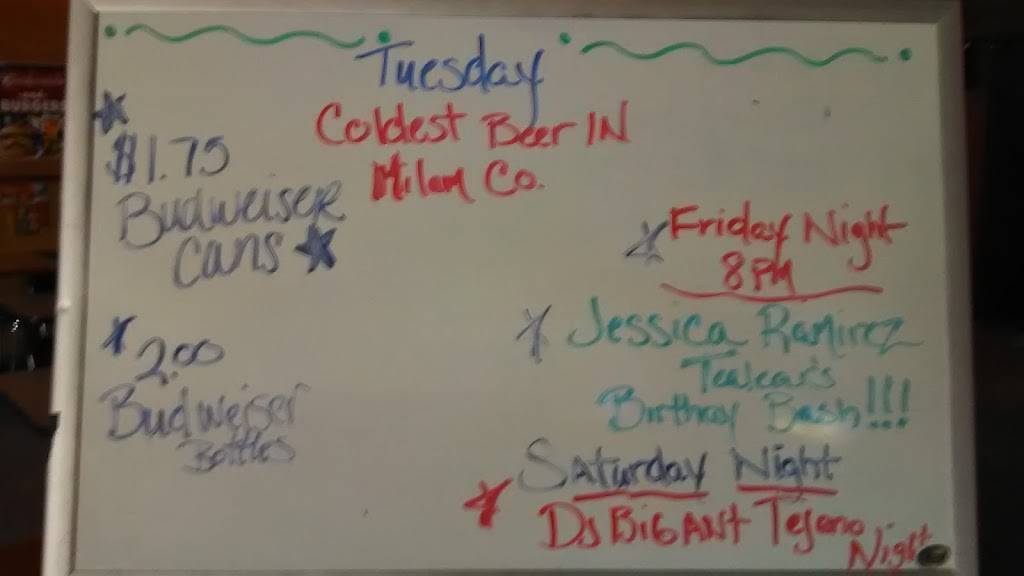 Tuesday
Coldest Beer IN
Milam Co.
$1.75
Budweiser
cans
2.00
Budweiser
Bottles
Friday Night
8 PM
Jessica Ramirez
Birthday Bash!!!
Saturday Night
DJ BiG ANt Tejano
Night
BURGERS